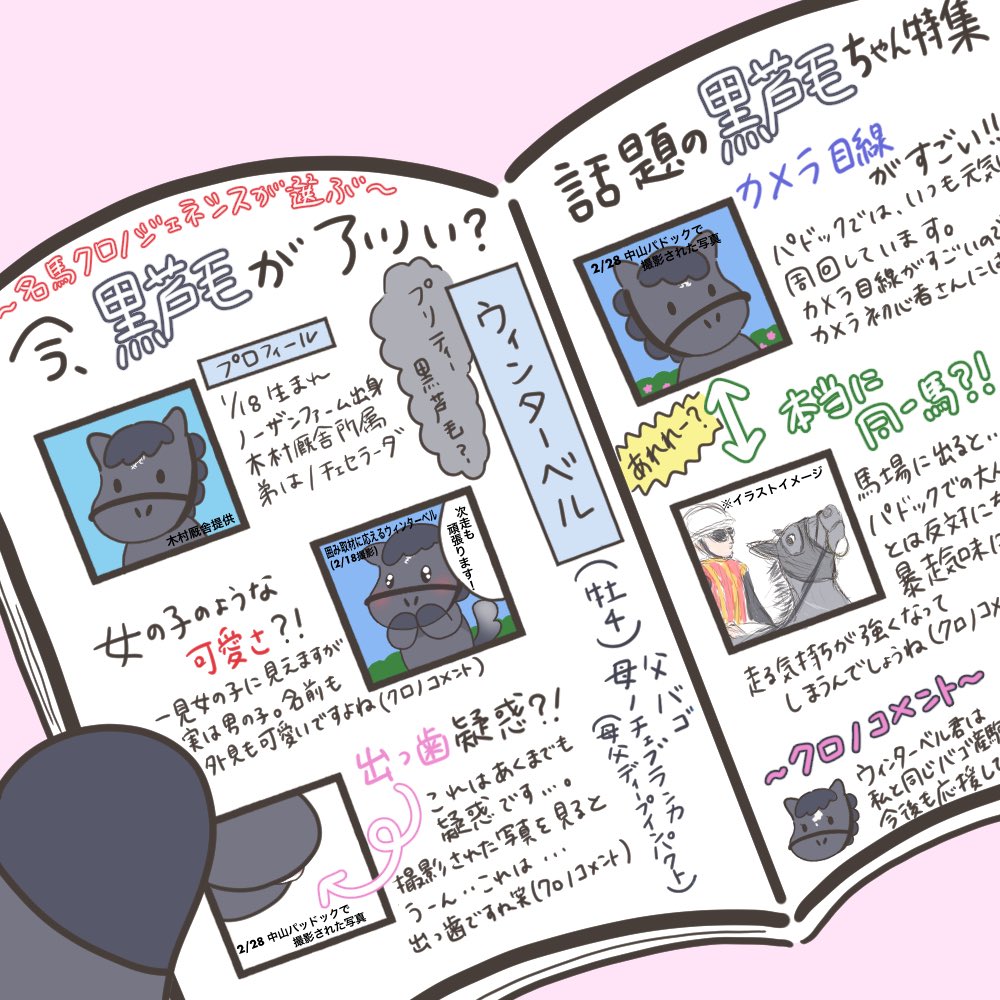 ~名馬クロノジェネシスが選ぶ~
今、黒芦毛がアツい?
プロフィール
1/18生まれ
ノーザンファーム出身
木村厩舎所属
弟はノチェセラーダ
木村厩舎提供
プリティー
黒芦毛?
ウィンターベル
(牡4)
父バゴ
母ノチェブランカ
(母父ディープインパクト)
女の子のような
可愛さ?!
一見女の子に見えますが
実は男の子。名前も
外見も可愛いですよね(クロノコメント)
囲み取材に応えるウィンターベル
(2/18撮影)
次走も
頑張ります!
出っ歯疑惑?!
これはあくまでも
疑惑です…。
撮影された写真を見ると
うーん…これは…
出っ歯ですね笑(クロノコメント)
2/28 中山パッドックで
撮影された写真
話題の黒芦毛ちゃん特集
カメラ目線
がすごい!!
2/28 中山パドックで
撮影された写真
パドックでは、いつも元気
周回しています。
カメラ目線がすごいので
カメラ初心者さんには
あれれー?
本当に
同一馬?!
※イラストイメージ
馬場に出ると…
パドックでの大人
とは反対に
暴走気味に
走る気持ちが強くなって
しまうんでしょうね(クロノコメ
~クロノコメント~
ウィンターベル君は
私と同じバゴ産駒
今後も応援して